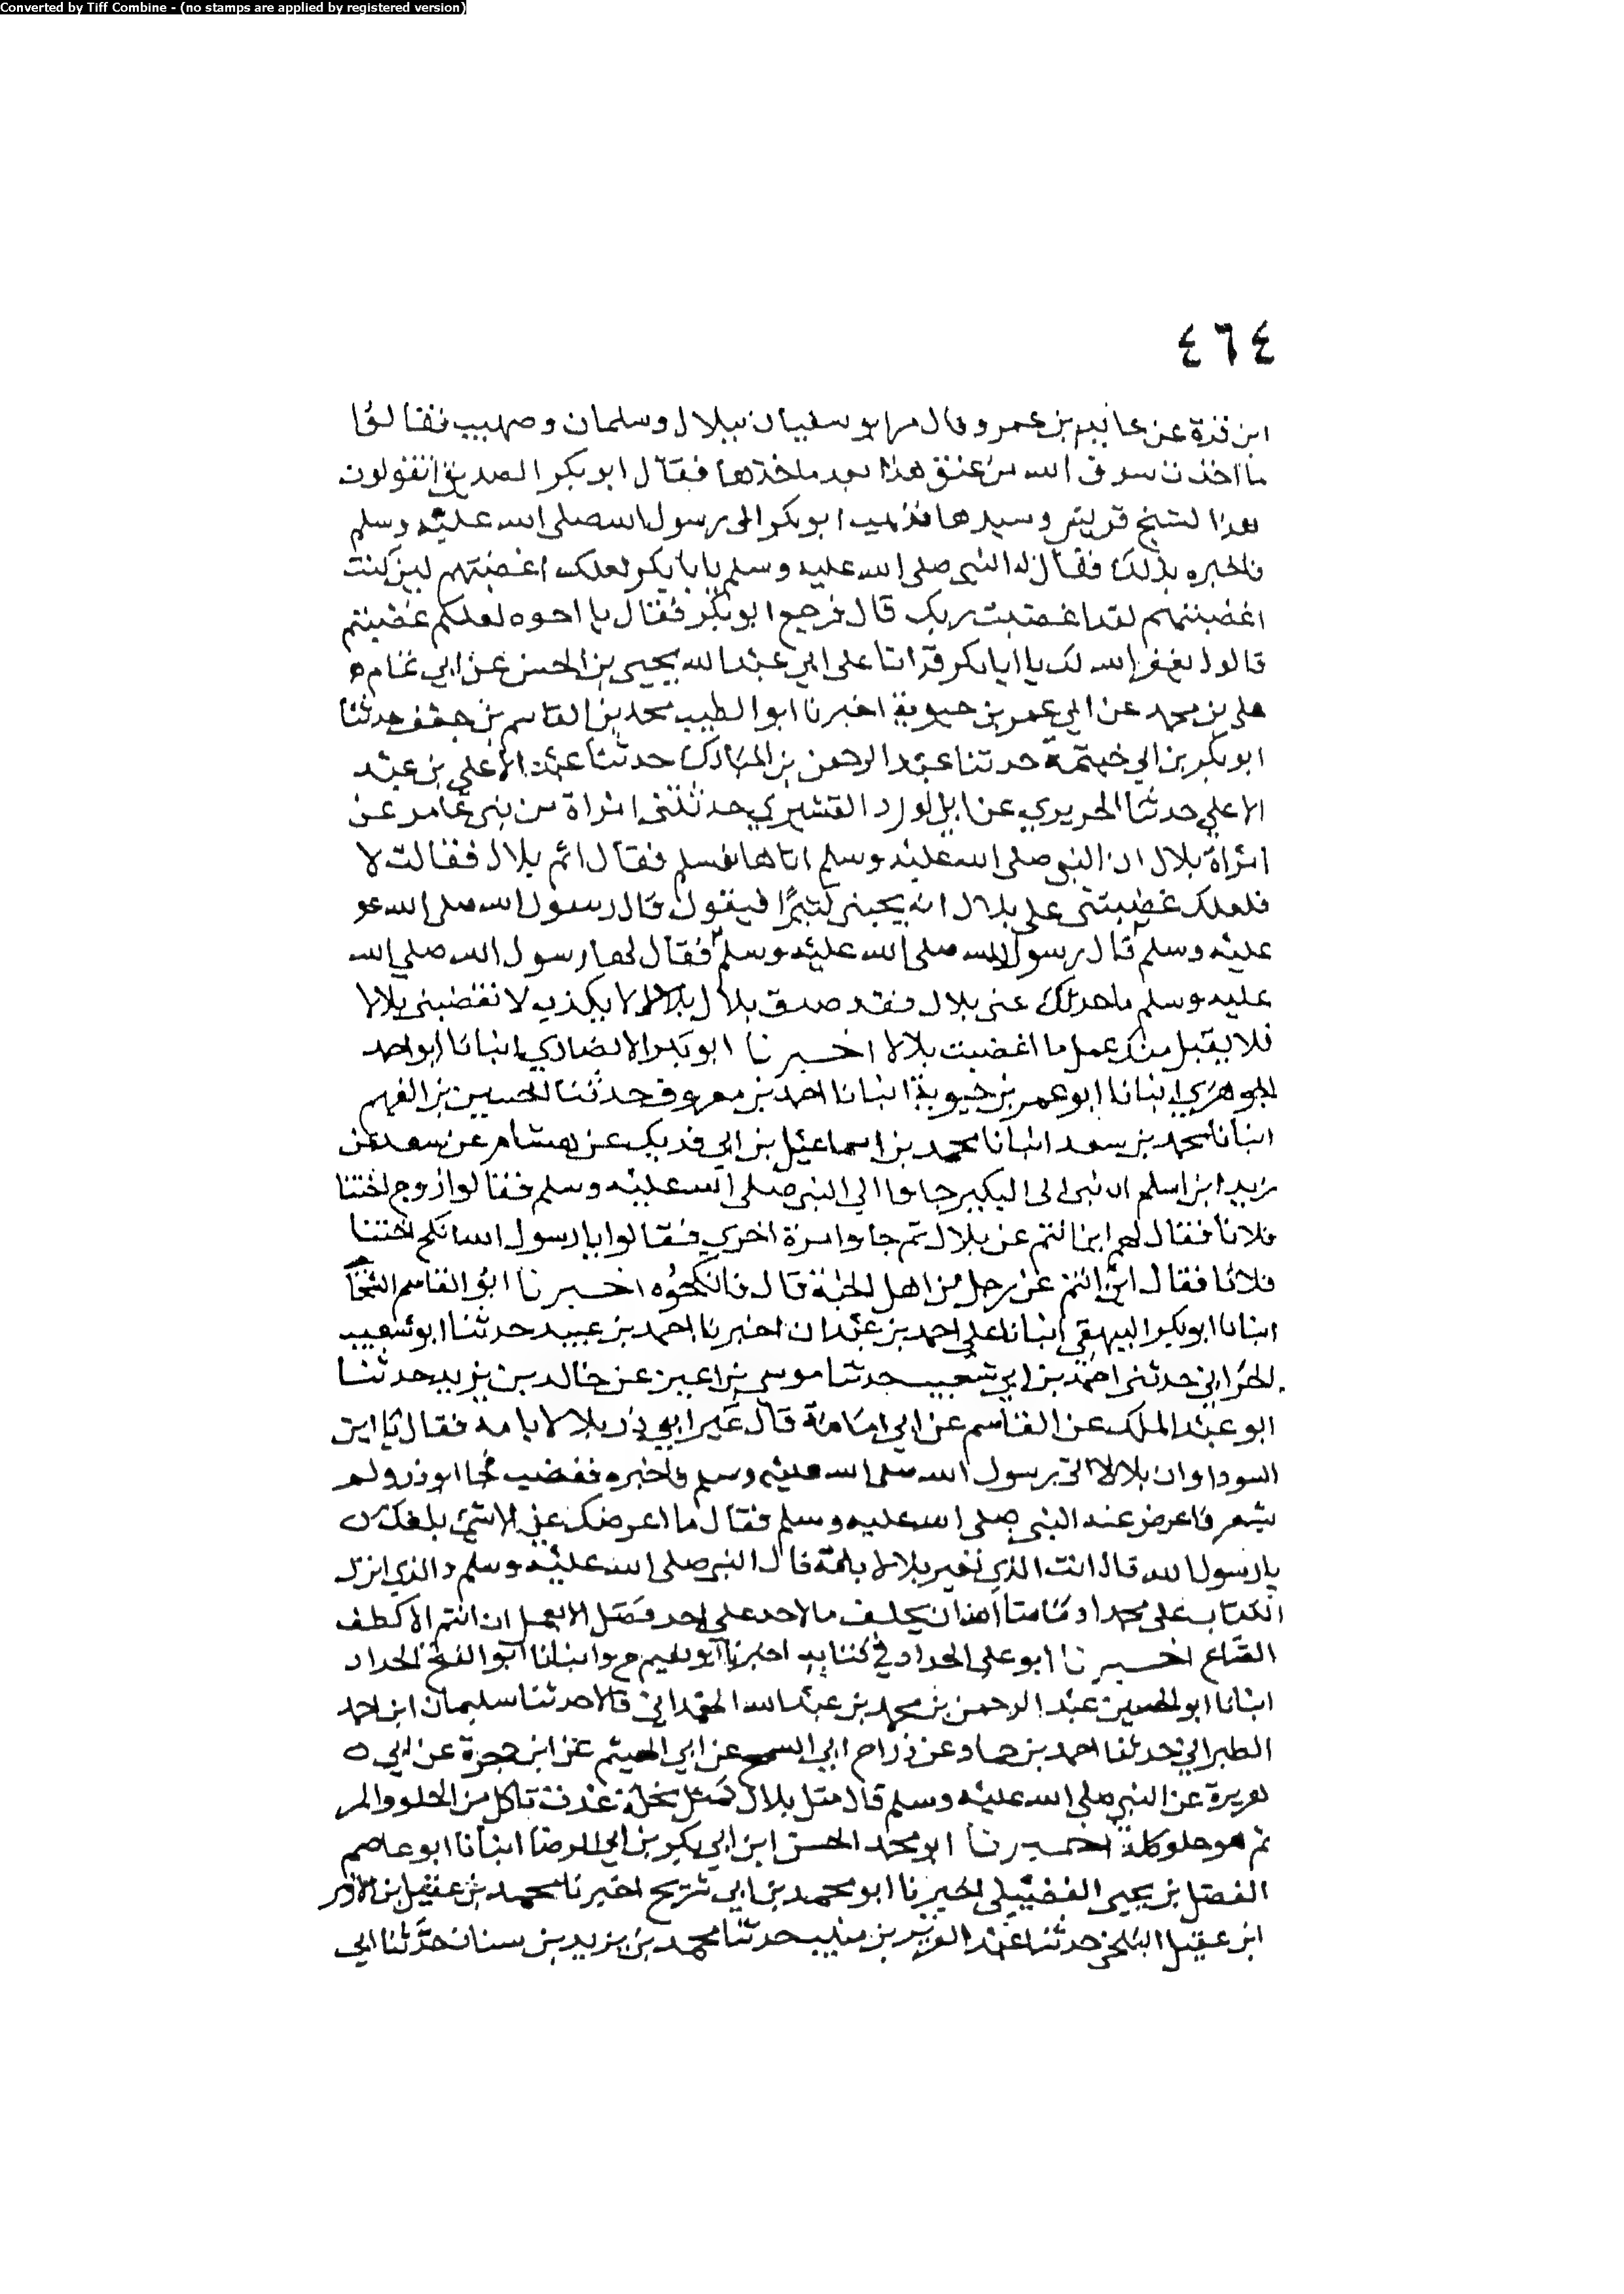 Converted by Tiff Combine - (no stamps are applied by registered version)
٤٦٤
ابن قرة عن عايذ بن عمرو قال مر ابو سفيان ببلال وسلمان وصهيب فقالوا
ما اخذت سيوف الله من عنق هذا بعد ماخذها فقال ابو بكر الصديق اتقولون
هذا لشيخ قريش وسيدها فذهب ابو بكر الى رسول الله صلى الله عليه وسلم
فاخبره بذلك فقال له النبي صلى الله عليه وسلم يا با بكر لعلك اغضبتهم لين كنت
اغضبتهم لقد اغضبت ربك قال فرجع ابو بكر فقال يا اخوه لعلكم غضبتم
قالوا يغفر الله لك يا ابا بكر قراتا على ابي عبد الله يحيى بن الحسن عن ابي تمام
علي بن محمد عن ابي عمر بن حيوية اخبرنا ابو الطيب محمد بن القاسم بن جعفر حدثنا
ابو بكر بن ابي خيثمة حدثنا عبد الرحمن بن المبارك حدثنا عبد الاعلى بن عبد
الاعلى حدثنا الجريري عن ابي الورد القشيري حدثتني امراة من بني عامر عن
امراة بلال ان النبي صلى الله عليه وسلم اتاها فسلم فقال اثم بلال فقالت لا
فلعلك غضبتي على بلال انه يجيني كثيرا فيقول قال رسول الله صلى الله عو
عليه وسلم قال رسول الله صلى الله عليه وسلم فقال لها رسول الله صلى الله
عليه وسلم ما حدثك عني بلال فقد صدق بلال بلال لا يكذب لا تغضبني بلالا
فلا يقبل منك عمل ما اغضبت بلالا اخبرنا ابو بكر الانصاري انبانا ابو محمد
الجوهري انبانا ابو عمر بن حيوية انبانا احمد بن معروف حدثنا الحسين بن الفهم
انبانا محمد بن سعد انبانا محمد بن اسماعيل بن ابي فديك عن هشام عن سعد عن
زيد ابن اسلم ان بني ابي البكير جاوا الى النبي صلى الله عليه وسلم فقالوا زوج اختنا
فلانا فقال لهم اين انتم عن بلال ثم جاوا مرة اخرى فقالوا يا رسول الله انكح اختنا
فلانا فقال اين انتم عن رجل من اهل الجنة قال فانكحوه اخبرنا ابو القاسم الشحا
انبانا ابو بكر البيهقي انبانا علي احمد بن عبدان اخبرنا احمد بن عبيد حدثنا ابو شعيب
الحراني حدثني احمد بن ابي شعيب حدثنا موسى بن اعين عن خالد بن يزيد حدثنا
ابو عبد الملك عن القاسم عن ابي امامة قال عير ابي ذر بلالا بامه فقال يا ابن
السودا وان بلالا اتى رسول الله صلى الله عليه وسلم فاخبره فغضب فجا ابو ذر ولم
يشعر فاعرض عند النبي صلى الله عليه وسلم فقال ما اعرضك عني الا شئ بلغك
يا رسول الله قال انت الذي تعير بلالا بامه قال النبي صلى الله عليه وسلم والذي انزل
الكتاب على محمد او ما شا الله ان يحلف مالاحد على احد فضل الا بعمل ان انتم الا كطف
الصاع اخبرنا ابو علي الحداد في كتابه اخبرنا ابو نعيم ح وانبانا ابو الفتح الحداد
انبانا ابو الحسين عبد الرحمن بن محمد بن عبد الله الهمداني قالا حدثنا سليمان ابن احمد
الطبراني حدثنا احمد بن حماد عن دراج ابي السمح عن ابي الهيثم عن ابن حجرة عن ابي
هريرة عن النبي صلى الله عليه وسلم قال مثل بلال كمثل نحلة غدت تاكل من الحلو والمر
ثم هو حلو كله اخبرنا ابو محمد الحسن ابن ابي بكر بن ابي الرضا انبانا ابو عاصم
الفضل بن يحيى الفضيلي اخبرنا ابو محمد بن ابي شريح اخبرنا محمد بن عقيل بن الازهر
ابن عقيل البلخي حدثنا عبد العزيز بن منيب حدثنا محمد بن يزيد بن سنان حدثنا ابي